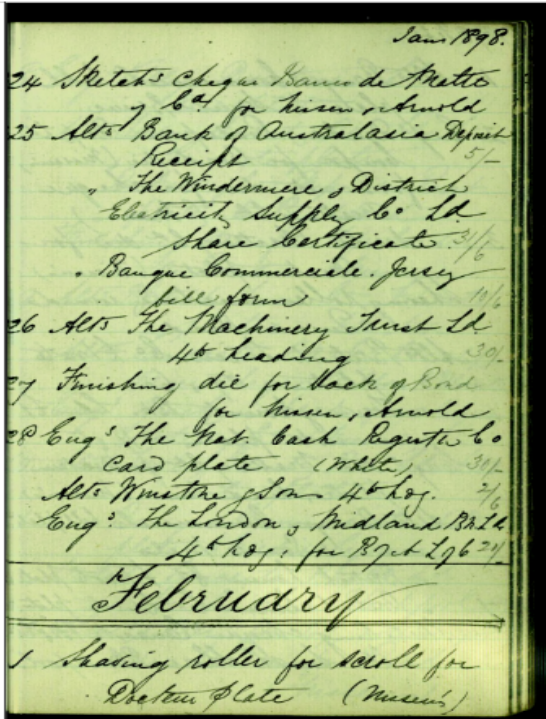 Jan 1898.
24 Sketchs cheque Banco de Matto
y Ca for Nissen & Arnold
25 Alts Bank of Australasia Deposit
Receipt 5/-
" The Windermere & District
Electricity Supply Co Ld
Share Certificate 3/6
" Banque Commerciale. Jersey
bill form 10/6
26 Alts The Machinery Trust Ld
4to heading 30/-
27 Finishing die for back of Bond
for Nissen & Arnold
28 Engs The Nat. Cash Register Co
Card plate (White) 30/-
Alts Winstone & Sons 4to hdg. 2/6
Engs The London & Midland Bk Ld
4to hdg: for 20/-
February
1 Shaving roller for scroll for
Docteur plate (Nissen's)